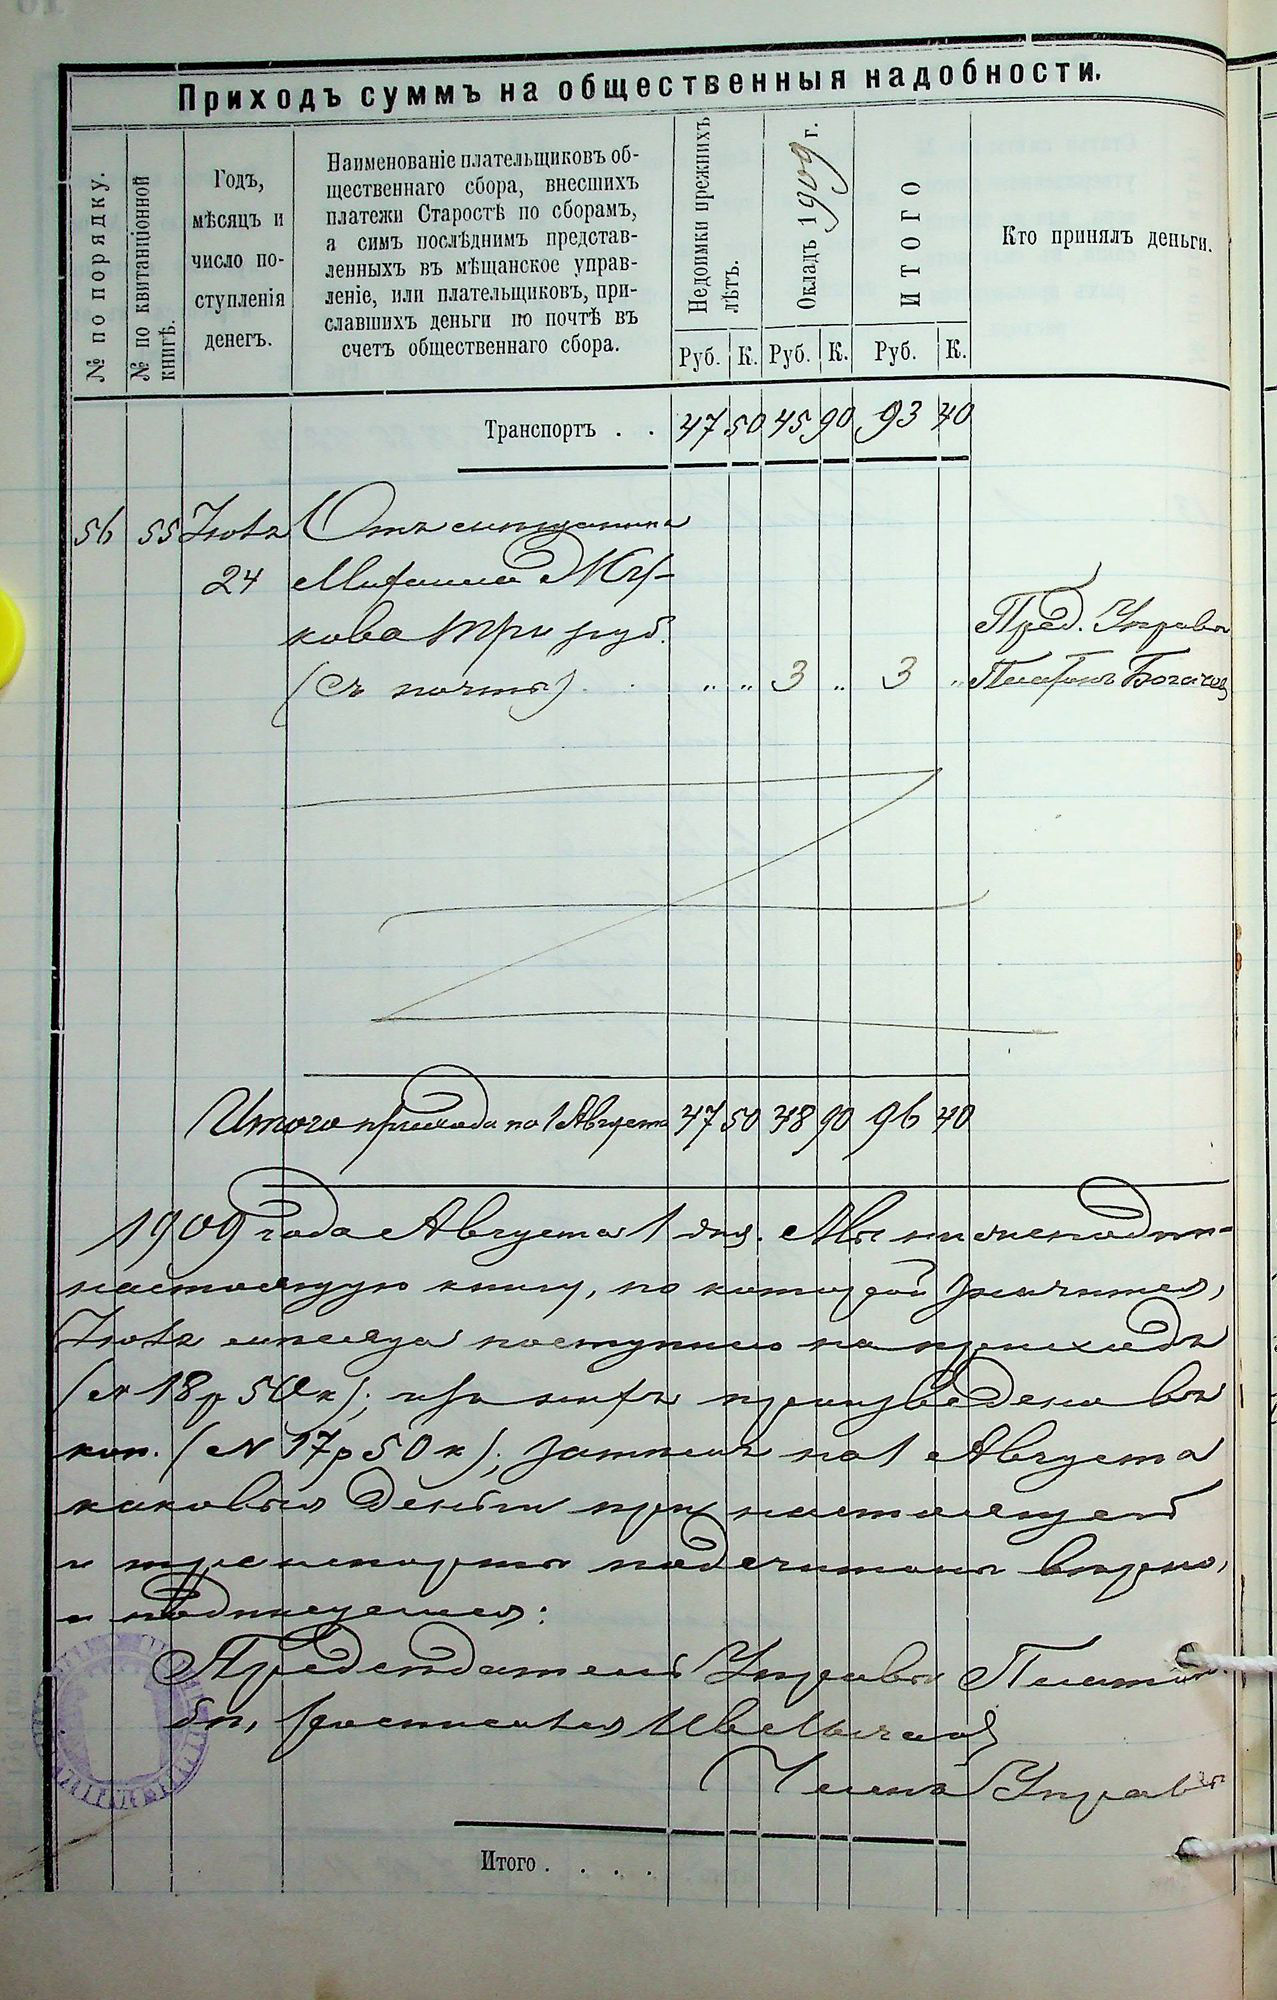 Приходъ суммъ на общественныя надобности.
№ по порядку.
№ по квитанціонной книгѣ.
Годъ,
мѣсяцъ и
число по-
ступленія
денегъ.
Наименованіе плательщиковъ об-
щественнаго сбора, внесшихъ
платежи Старостѣ по сборамъ,
а симъ послѣднимъ представ-
ленныхъ въ мѣщанское управ-
леніе, или плательщиковъ, при-
славшихъ деньги по почтѣ въ
счетъ общественнаго сбора.
Недоимки прежнихъ
лѣтъ.
Окладъ 1909 г.
ИТОГО
Кто принялъ деньги.
Руб. К. Руб. К. Руб. К.
Транспортъ . . 47 50 45 90 93 40
56 55 Іюля Отъ мѣщанина
24 Михаила
кова три руб. Пред. Управы
(Съ почты) . . „ „ 3 „ 3 „ Платонъ Богачев
Итого прихода по 1 Августа 47 50 48 90 96 40
1909 года Августа 1 дня. Мы нижеподпи-
настоящую книгу, по которой значится,
Іюля мѣсяца поступило на приходъ
(№ 18 р 50 к); изъ нихъ произведено въ
коп. (№ 17 р 50 к); затѣмъ на 1 Августа
каковыя деньги при настоящей
и транспорты подсчитаны вѣрно,
и подписуемся:
Предсѣдатель Управы Платон
Члена Управы
Итого . . . .